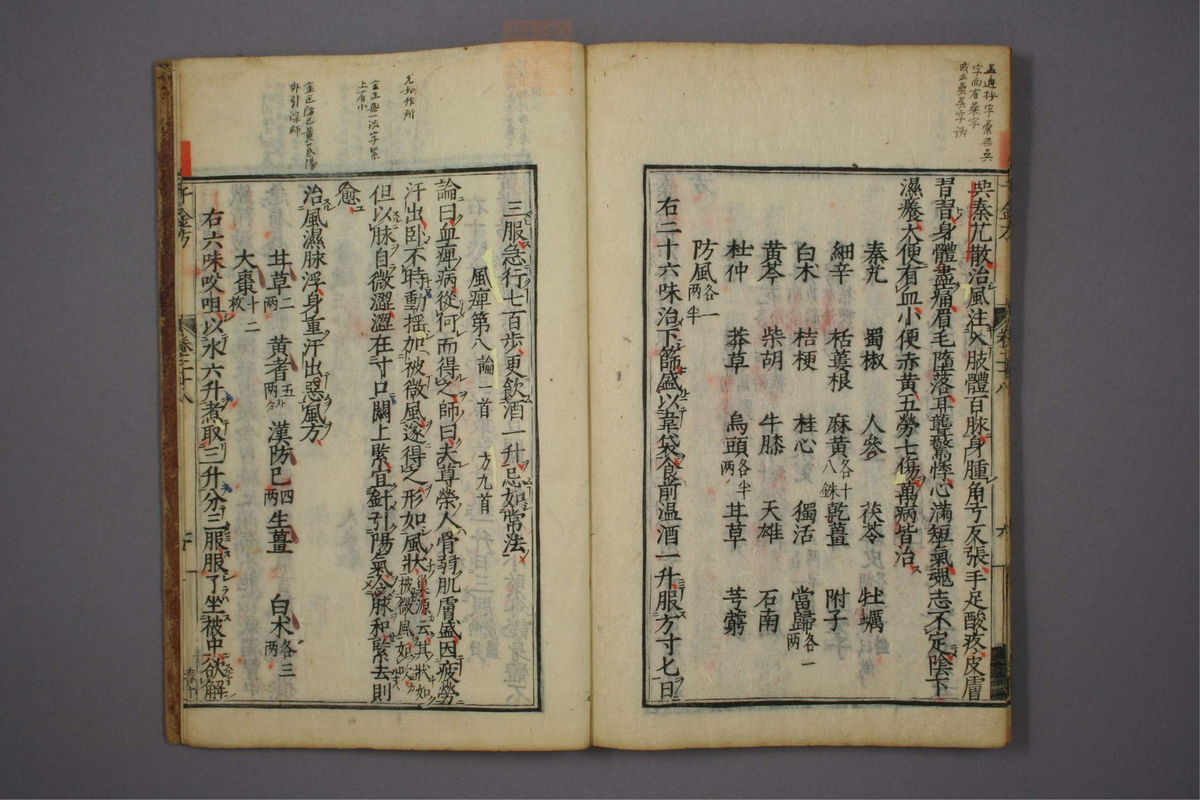 吳秦艽散治風注入肢體百脉身腫角弓反張手足酸疼皮膚
習習身體盡痛眉毛墮落耳聾驚悸心滿短氣魂志不定陰下
濕癢大便有血小便赤黃五勞七傷萬病皆治
秦艽 蜀椒 人參 茯苓 牡蠣
細辛 栝蔞根 麻黃各十八銖 乾薑 附子
白木 桔梗 桂心 獨活 當歸各一兩
黃芩 柴胡 牛膝 天雄 石南
杜仲 莽草 烏頭各半兩 甘草 芎藭
防風各一兩半
右二十六味治下篩盛以韋袋食前温酒一升服方寸匕日
三服急行七百歩更飲酒一升忌如常法
風痺第八論一首 方九首
論曰血痺病從何而得之師曰夫尊榮人骨弱肌膚盛因疲勞
汗出臥不時動搖加被微風遂得之形如風狀巢源云其狀如被微風所吹
但以脉自微澀澀在寸口關上緊宜針引陽氣令脉和緊去則
愈
治風濕脉浮身重汗出惡風方
甘草二兩 黃耆五兩 漢防已四兩 生薑 白木各三兩
大棗十二枚
右六味㕮咀以水六升煮取三升分三服服了坐被中欲解
千金方
卷二十八